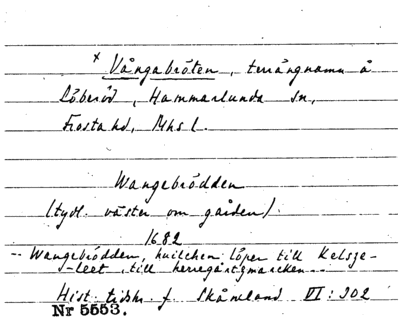 x Vångabröten, terrängnamn å
Löberöd, Hammarlunda sn,
Frosta hd, Mhs l.
Wangebrödden
(tydl. väster om gården).
1682
-- Wangebrödden, huilchen löper till Kelsge-
-leet, till herregårtzmarcken --
Hist. tidskr. f. Skåneland VI: 302
Nr 5553.